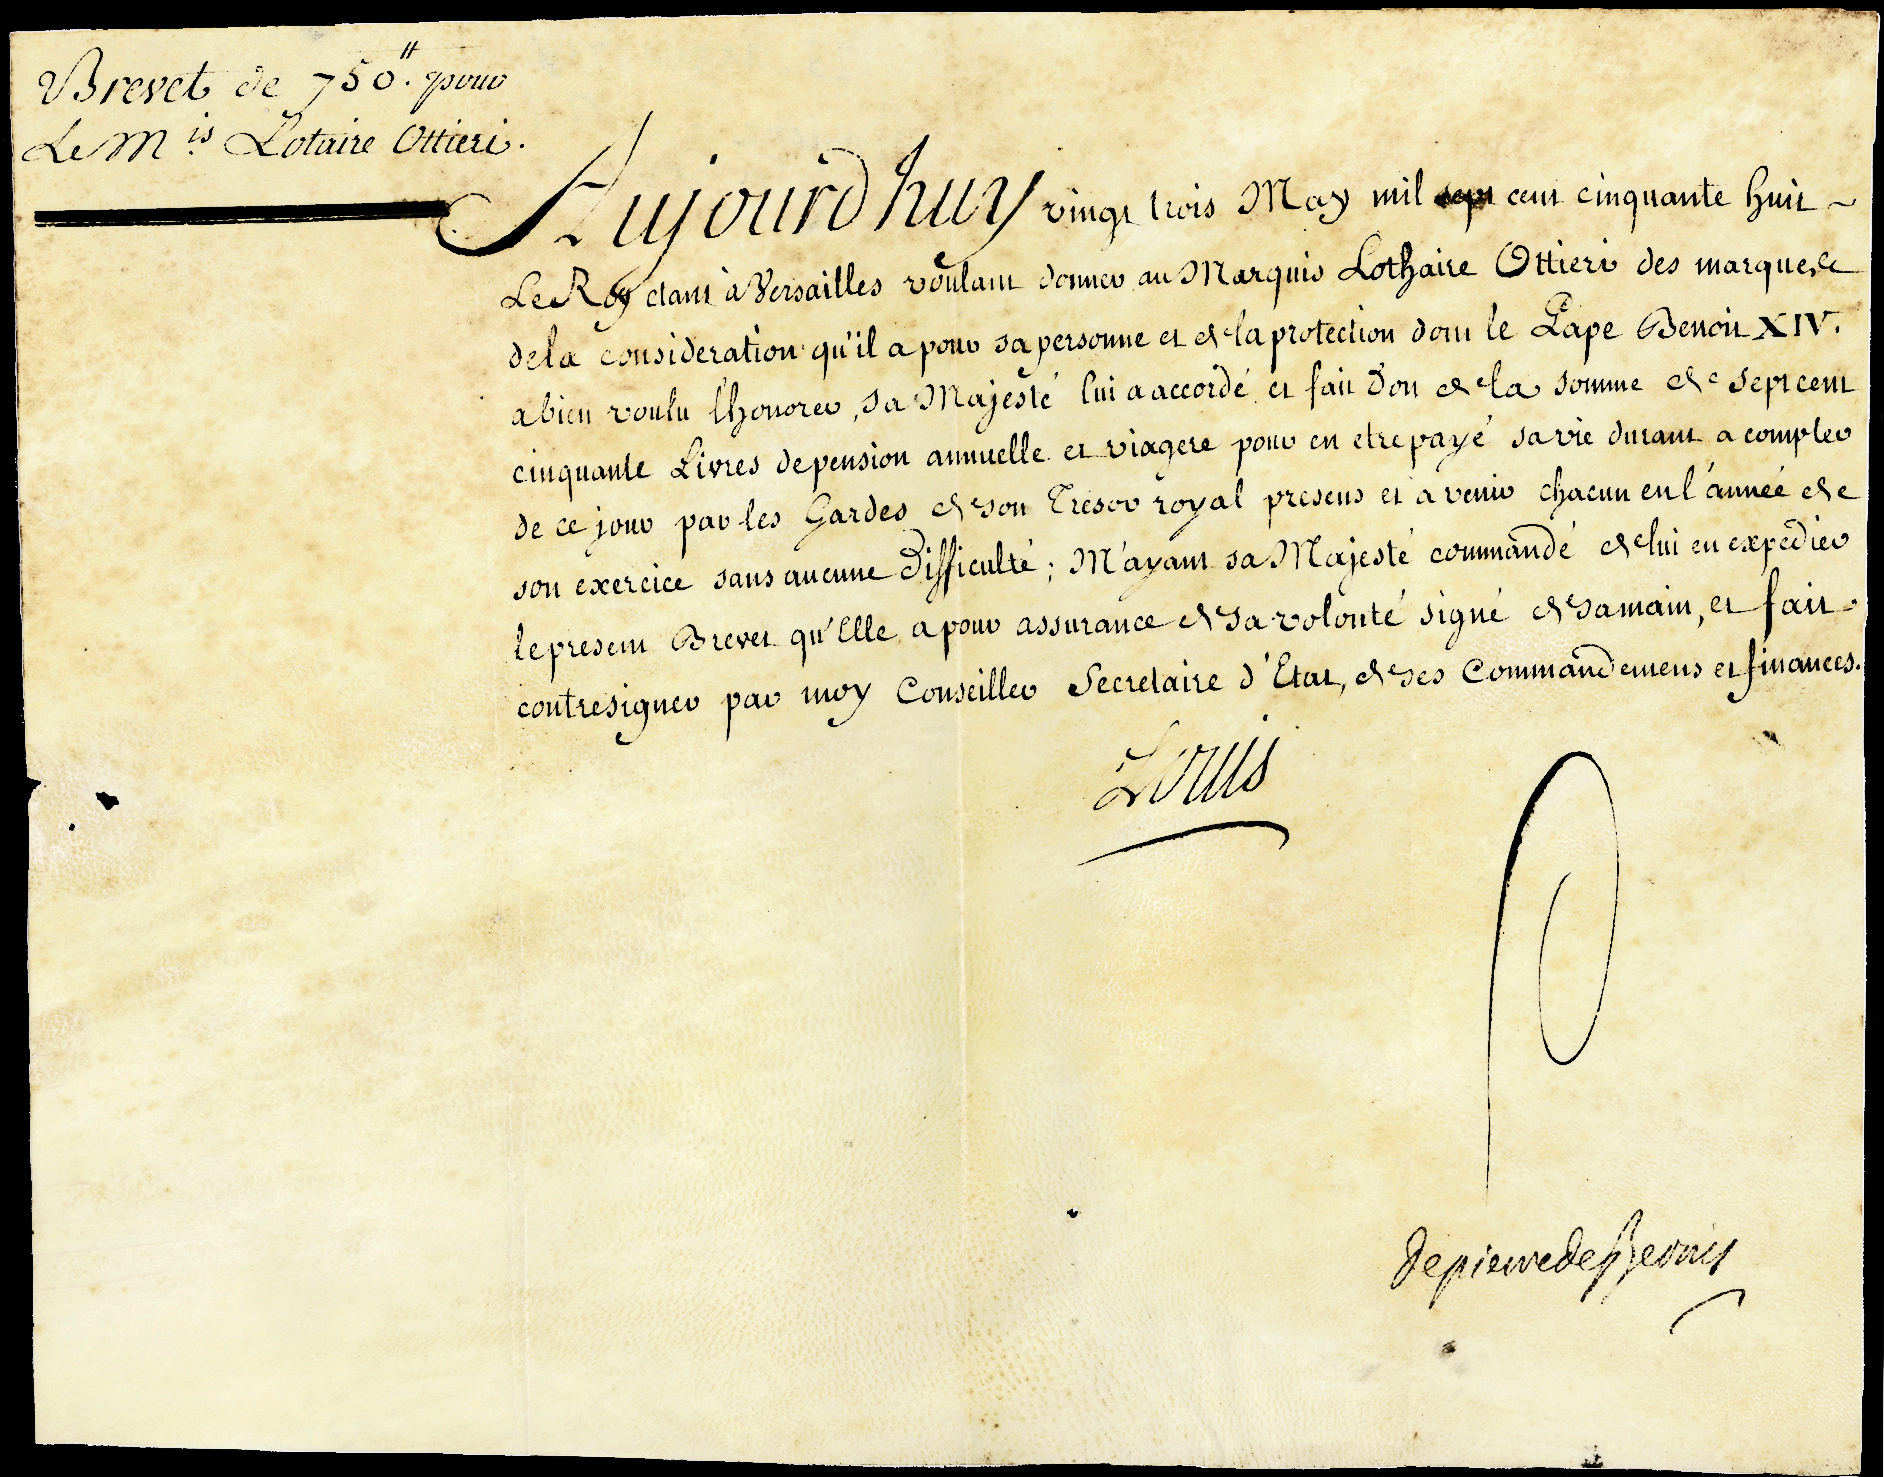 Brevet de 750.ᵗᵗ pour
Le M.is Lotaire Ottieri.
Aujourd huy vingt trois May mil sept cent cinquante huit ~
Le Roy etant à Versailles voulant donner au Marquis Lothaire Ottieri des marques
de la consideration qu'il a pour sa personne et de la protection dont le Pape Benoit XIV.
a bien voulu l'honorer, Sa Majesté lui a accordé et fait Don de la somme de Sept cent
cinquante Livres de pension annuelle et viagere pour en etre payé sa vie durant a compter
de ce jour par les Gardes de son Tresor royal presens et a venir chacun en l'année de
son exercice sans aucune Difficulté; M'ayant sa Majesté commandé de lui en expedier
le present Brevet qu'Elle a pour assurance de sa volonté signé de sa main, et fait
contresigner par moy Conseiller Secretaire d'Etat, de ses Commandemens et finances.
Louis
De pierre de Bernis